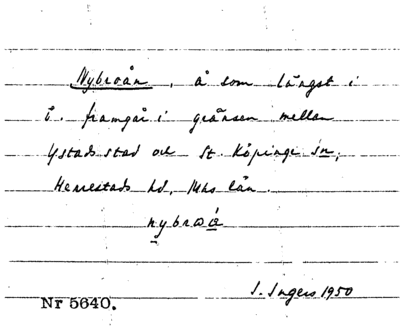 Nybroån, å som längst i
Ö. framgår i gränsen mellan
Ystads stad och St. Köpinge sn,
Herrestads hd, Mhs län.
nybroå
I. Ingers 1950
Nr 5640.